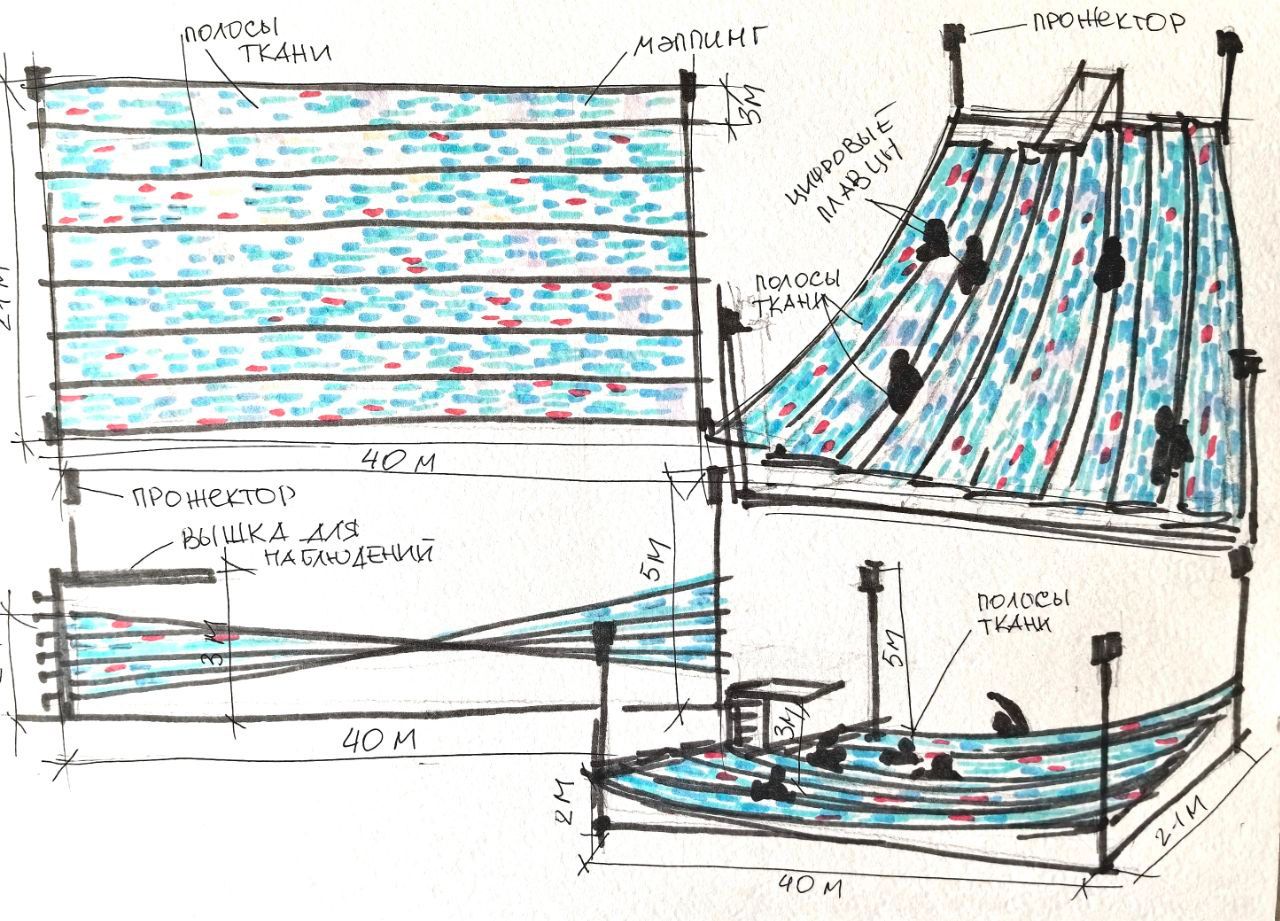 ПОЛОСЫ
ТКАНИ
МЭППИНГ
3М
40 М
ПРОЖЕКТОР
ЦИФРОВЫЕ
ПЛАВЦЫ
ПОЛОСЫ
ТКАНИ
ПРОЖЕКТОР
ВЫШКА ДЛЯ
НАБЛЮДЕНИЙ
3М
5М
40 М
ПОЛОСЫ
ТКАНИ
5М
3М
2М
40 М
21М